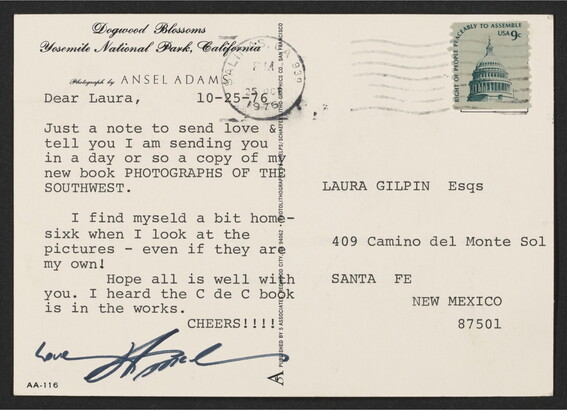 Dogwood Blossoms
Yosemite National Park, California
Photograph by ANSEL ADAMS
Dear Laura, 10-25-76
Just a note to send love &
tell you I am sending you
in a day or so a copy of my
new book PHOTOGRAPHS OF THE
SOUTHWEST.
I find myseld a bit home-
sixk when I look at the
pictures - even if they are
my own!
Hope all is well with
you. I heard the C de C book
is in the works.
CHEERS!!!!
Love
Ansel
AA-116
PM
25 OCT
1976
RIGHT OF PEOPLE PEACEABLY TO ASSEMBLE
USA 9c
LAURA GILPIN Esqs
409 Camino del Monte Sol
SANTA FE
NEW MEXICO
87501